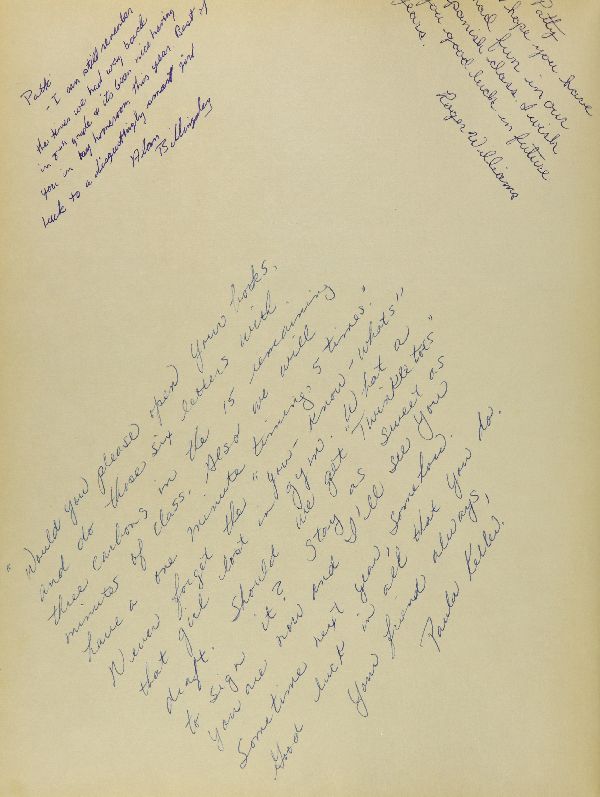 Patti
- I can still remember
the times we had way back
in 7th grade & its been nice having
you in my homeroom this year. Best of
luck to a disgustingly smart girl
Alan
Billingsley
Patty
hope you have
had fun in our
Spanish class. I wish
you good luck in future
years.
Roger Williams
"Would you please open your books,
and do those six letters with
three carbons in the 15 remaining
minutes of class. Also we will
have a one minute timing, 5 times."
Never forget the "you-know-whats"
that girl lost in gym. "What a
draft. Should we get "Twinkle toes"
to sign it? Stay as sweet as
you are now and I'll see you
Sometime next year, somehow.
Good luck in all that you do.
Your friend always,
Paula Keller.